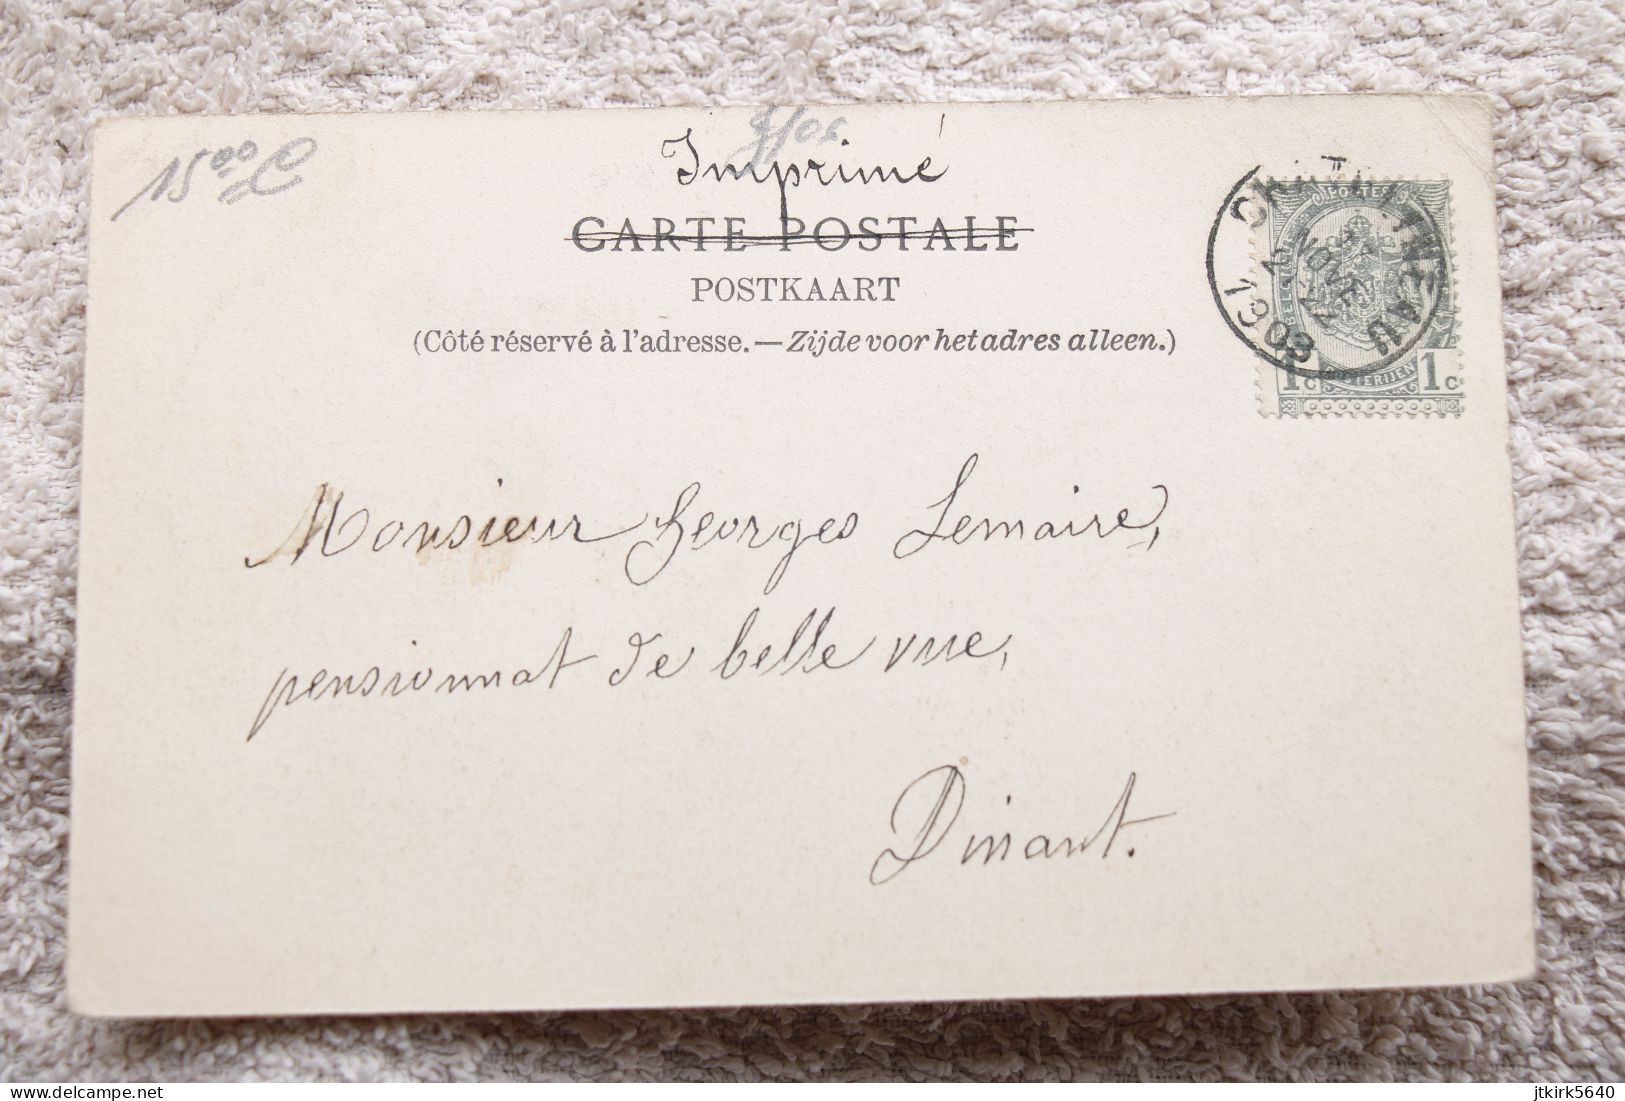 15⁰⁰
Imprimé
CARTE POSTALE
POSTKAART
(Côté réservé à l'adresse.—Zijde voor het adres alleen.)
POSTES
1c POSTERIJEN 1c
NOVE
1900
Monsieur Georges Lemaire,
pensionnat de belle vue,
Dinant.
delcampe.net
jtkirk5640